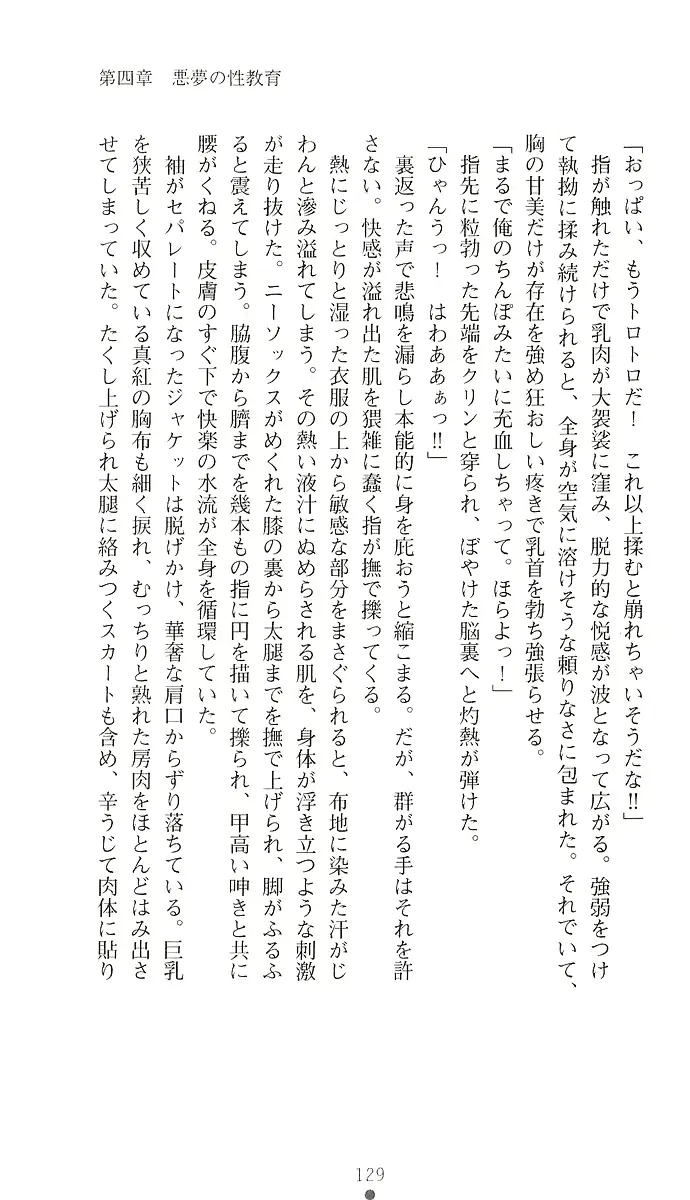 第四章　悪夢の性教育
「おっぱい、もうトロトロだ！　これ以上揉むと崩れちゃいそうだな‼」
指が触れただけで乳肉が大袈裟に窪み、脱力的な悦感が波となって広がる。強弱をつけ
て執拗に揉み続けられると、全身が空気に溶けそうな頼りなさに包まれた。それでいて、
胸の甘美だけが存在を強め狂おしい疼きで乳首を勃ち強張らせる。
「まるで俺のちんぽみたいに充血しちゃって。ほらよっ！」
指先に粒勃った先端をクリンと穿られ、ぼやけた脳裏へと灼熱が弾けた。
「ひゃんうっ！　はわああぁっ‼」
裏返った声で悲鳴を漏らし本能的に身を庇おうと縮こまる。だが、群がる手はそれを許
さない。快感が溢れ出た肌を猥雑に蠢く指が撫で擽ってくる。
熱にじっとりと湿った衣服の上から敏感な部分をまさぐられると、布地に染みた汗がじ
わんと滲み溢れてしまう。その熱い液汁にぬめらされる肌を、身体が浮き立つような刺激
が走り抜けた。ニーソックスがめくれた膝の裏から太腿までを撫で上げられ、脚がふるふ
ると震えてしまう。脇腹から臍までを幾本もの指に円を描いて擽られ、甲高い呻きと共に
腰がくねる。皮膚のすぐ下で快楽の水流が全身を循環していた。
袖がセパレートになったジャケットは脱げかけ、華奢な肩口からずり落ちている。巨乳
を狭苦しく収めている真紅の胸布も細く捩れ、むっちりと熟れた房肉をほとんどはみ出さ
せてしまっていた。たくし上げられ太腿に絡みつくスカートも含め、辛うじて肉体に貼り
129